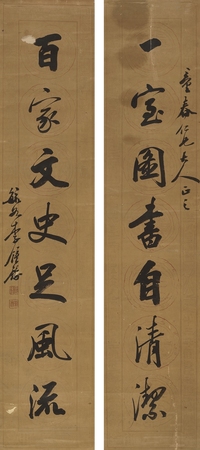 一室图書自清潔
春仁兄大人正之
百家文史足風流
李鍾